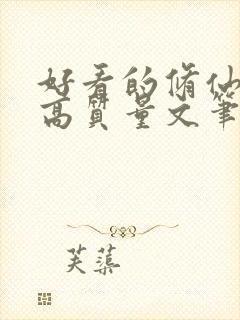 好看的脩仙
高質量文筆
芙蕖